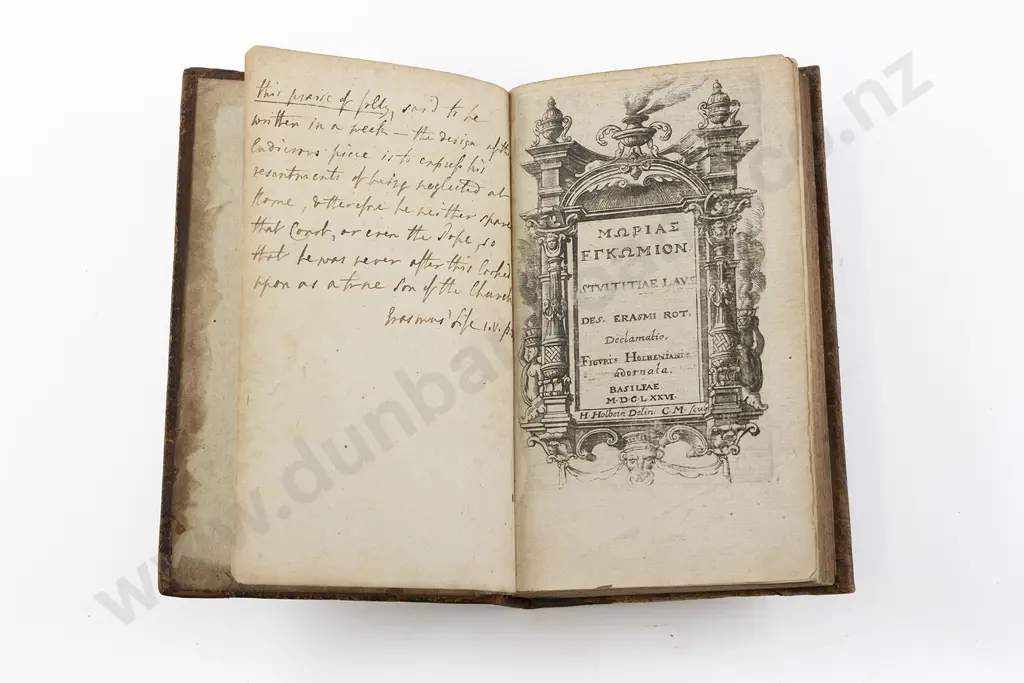 this praise of folly, said to be
written in a week — the design of th
Ludicrous piece is to express his
resentments of being neglected at
Rome, & therefore he neither spare
that Court, or even the Pope, so
that he was never after this Looked
upon as a true Son of the Church
Erasmus' Life 1. V. p.
ΜΩΡΙΑΣ
ΕΓΚΩΜΙΟΝ.
STVLTITIAE LAVS
DES. ERASMI ROT.
Declamatio,
FIGVRIS HOLBENIANIS
adornata.
BASILEAE.
M.DC.LXXVI.
H. Holbein Delin. C. M. scul
www.dunbar .nz